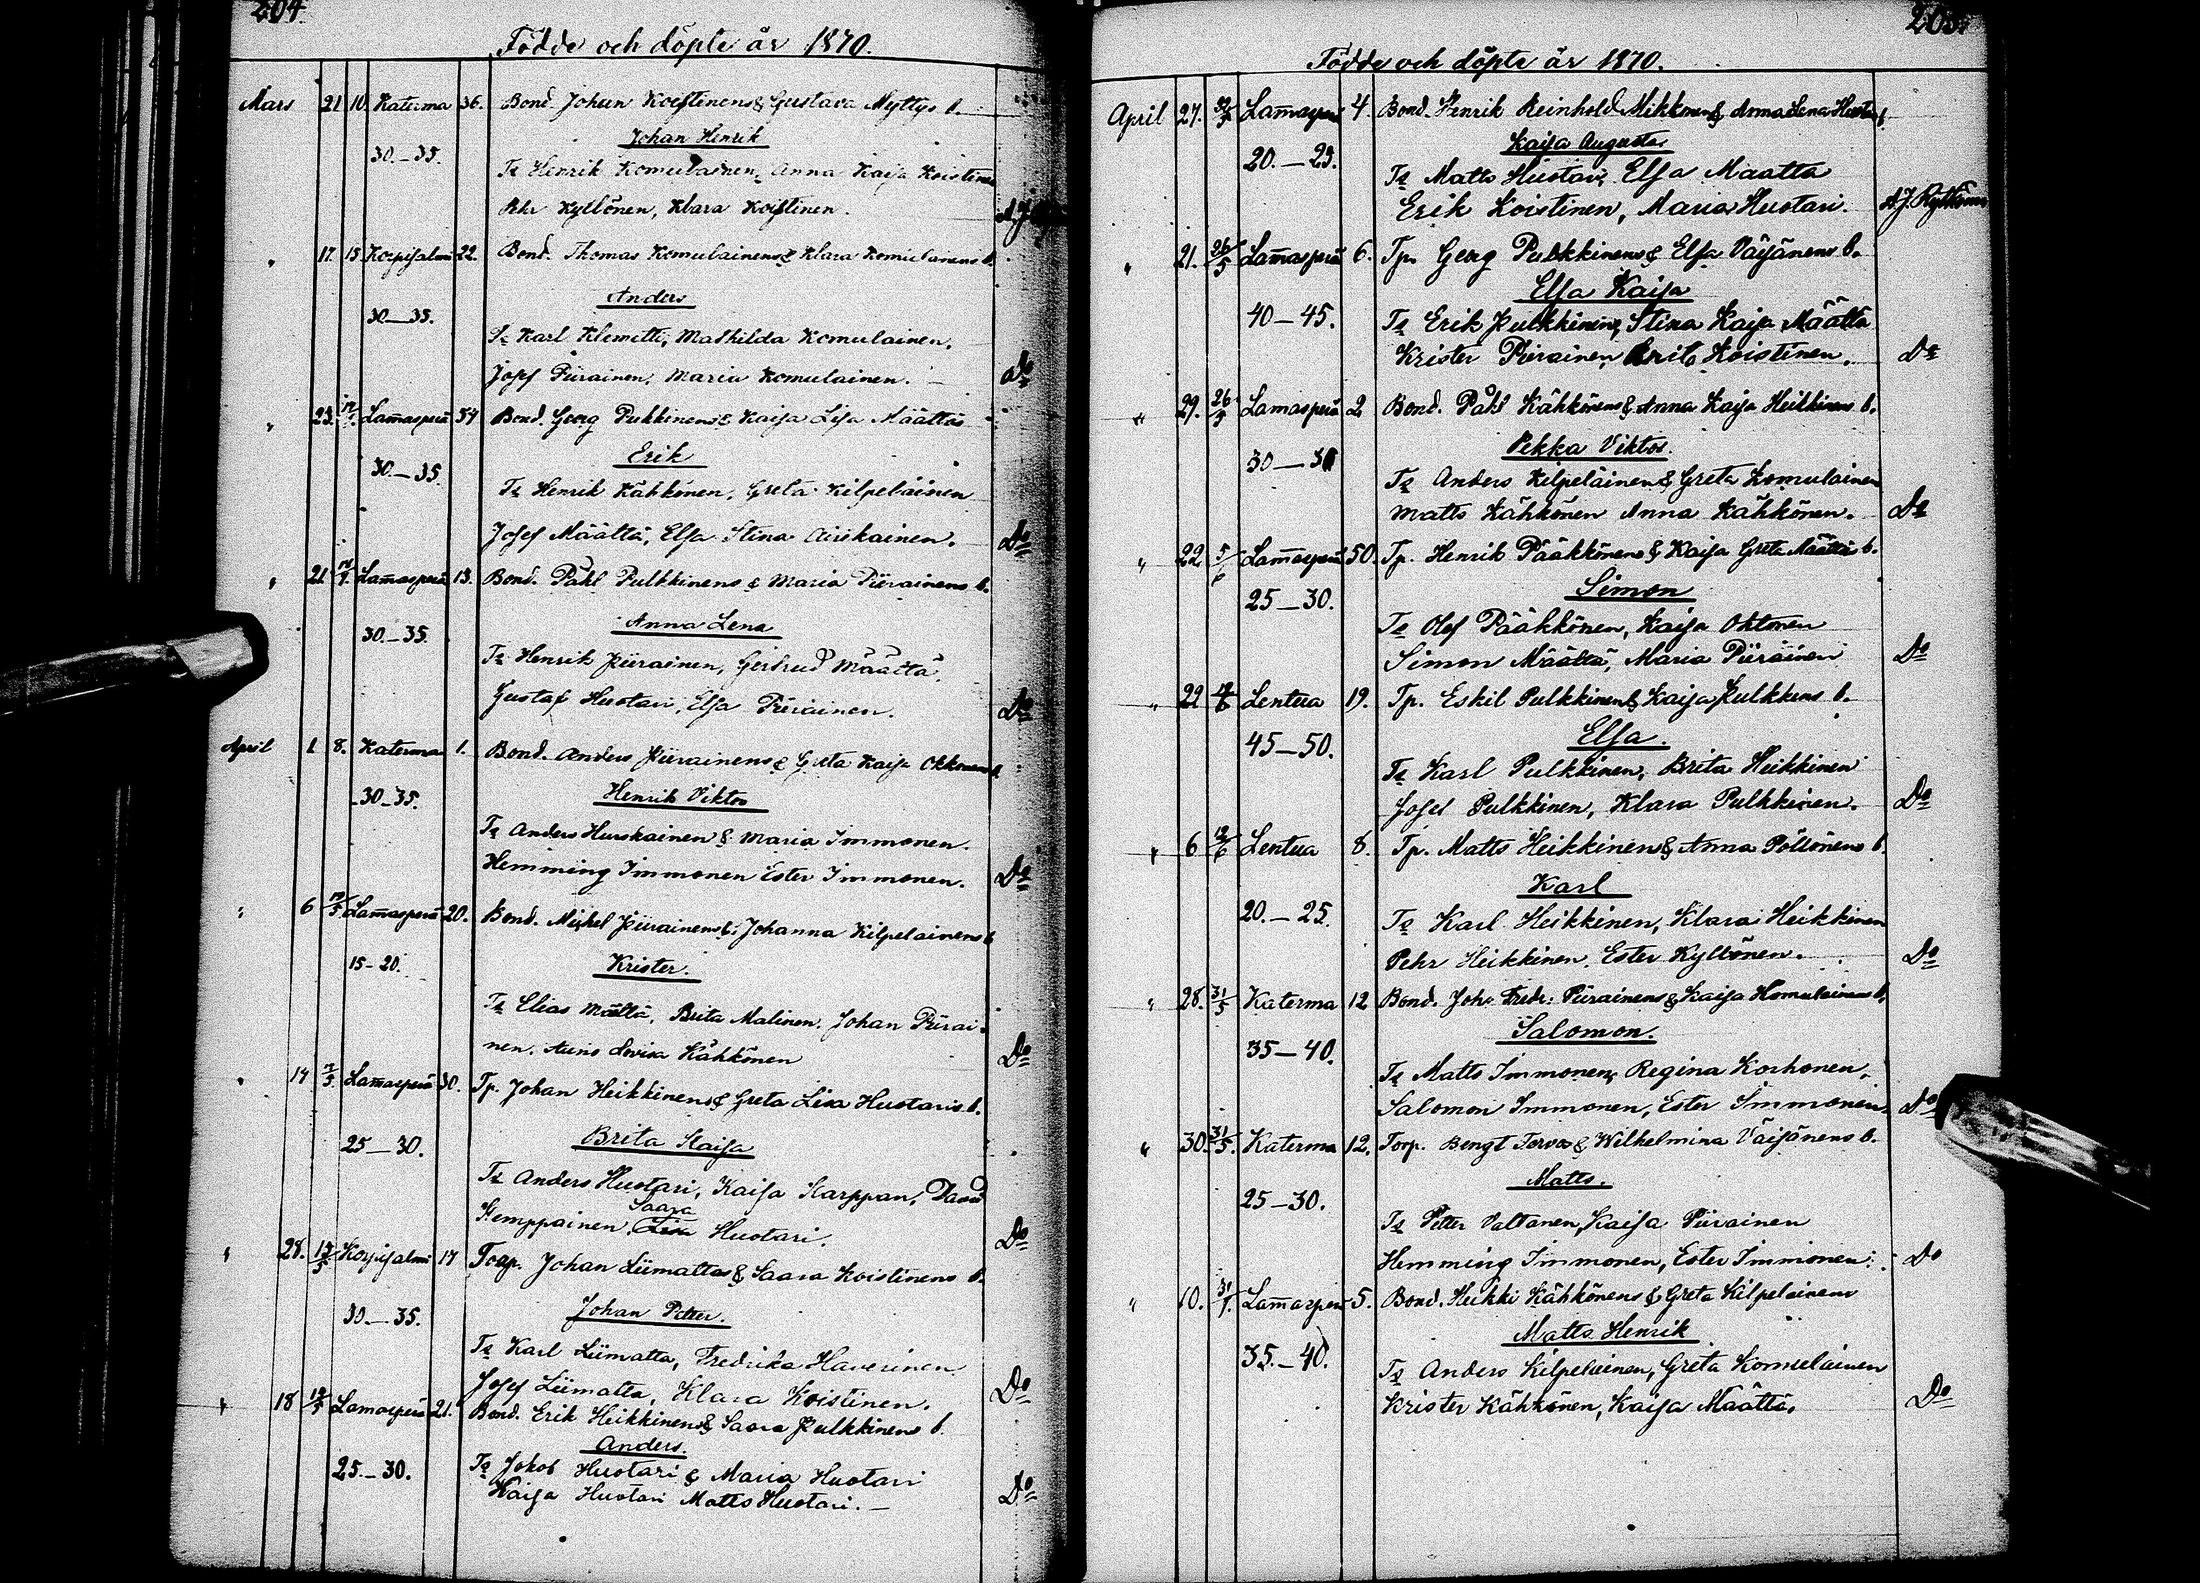 204.
Födde och döpte år 1870.
Mars 21 10. Katerma 36. Bond. Johan Koistinens & Gustava Myttys b.
Johan Henrik
30.–35.
Ts Henrik Komulainen, Anna Kaija Koistinen
Pehr Kyllönen, Klara Koistinen.
" 17. 15 Korpisalmi 22. Bond. Thomas Komulainens & Klara Komulainens b.
Anders
30–35.
Ts Karl Klemetti, Mathilda Komulainen.
Josef Piirainen, Maria Komulainen. Do
" 23. Lam̄asperä 54 Bond. Georg Pulkkinens & Kaisa Lisa Määttäs
Erik
30.–35.
Ts Henrik Kähkönen, Greta Kilpeläinen
Josef Määttä, Elsa Stina Airikainen. Do
" 21 Lam̄asperä 13. Bond. Påhl Pulkkinens & Maria Piirainens b.
Anna Lena
30.–35.
Ts Henrik Piirainen, Gertrud Määttä.
Gustaf Huotari, Elsa Piirainen. Do
April 1 8. Katerma 1. Bond. Anders Piirainens & Greta Kaija Okkonens b.
Henrik Viktor
30–35.
Ts Anders Hurskainen & Maria Immonen.
Hemming Immonen Ester Immonen. Do
" 6 Lam̄asperä 20. Bond. Mickel Piirainens & Johanna Kilpelainens b
Krister.
15–20.
Ts Elias Mättä, Brita Malinen. Johan Piirai-
nen. Lovisa Kähkönen Do
" 14 Lam̄asperä 30. Tp. Johan Heikkinens & Greta Lisa Huotaris b.
Brita Kaisa
25–30.
Ts Anders Huotari, Kaisa Karppan, David
Saara
Kemppainen, Lisa Huotari. Do
" 28. Korpisalmi 17 Torp. Johan Liimattas & Saara Koistinens b.
Johan Petter.
30.–35.
Ts Karl Liimatta, Fredrika Haverinen
Josef Liimatta, Klara Koistinen. Do
" 18 Lamasperä 21. Bond. Erik Heikkinens & Saara Pulkkinens b.
Anders.
25.–30.
Ts Jokob Huotari & Maria Huotari
Kaija Huotari Matts Huotari.– Do
205.
Födde och döpte år 1870.
April 27. Lam̄asperä 4. Bond. Henrik Reinhold Mikkonens & Anna Lena Huotaris b.
Kaisa Augusta.
20.–25.
Ts Matts Huotari, Elsa Maatta
Erik Koistinen, Maria Huotari. A.J. Kyttönen
" 21. 26/5 Lam̄asperä 6. Tp. Georg Pulkkinens & Elsa Väisänens b.
Elsa Kaisa
40–45.
Ts Erik Pulkkinen, Stina Kaisa Määttä
Krister Piirainen, Brita Koistinen. Do
" 29. 26/5 Lamasperä 2 Bond. Påhl Kähkönens & Anna Kaija Heikkinens b.
Pekka Viktor.
30–31
Ts Anders Kilpeläinen & Greta Komulainen
Matts Kähkönen Anna Kähkönen. Do
" 22 5/6 Lam̄asperä 50. Tp. Henrik Pääkkönens & Kaija Greta Määttäs b.
Simon
25–30.
Ts Olof Pääkkönen, Kaija Oktonen
Simon Määttä, Maria Piirainen Do
" 22 Lentua 19. Tp. Eskil Pulkkinens & Kaija Pulkkins b.
Elsa.
45–50.
Ts Karl Pulkkinen, Brita Heikkinen
Josef Pulkkinen, Klara Pulkkinen. Do
" 6 12/6 Lentua 8. Tp. Matts Heikkinens & Anna Pöllönens b.
Karl
20.–25.
Ts Karl Heikkinen, Klara Heikkinen
Pehr Heikkinen. Ester Kyllönen. Do
" 28. 31/5 Katerma 12 Bond. Joh. Fredr: Piirainens & Kaija Komulainens b.
Salomon.
35–40.
Ts Matts Immonen, Regina Korhonen.
Salomon Immonen, Ester Immonen. Do
" 30. 31/5. Katerma 12. Torp. Bengt Tervos & Wilhelmina Väisänens b.
Matts.
25–30.
Ts Petter Valtanen, Kaisa Piirainen
Hemming Immonen, Ester Immonen. Do
" 10. Lam̄asperä 5. Bond. Heikki Kähkönens & Greta Kilpelainens
Matts Henrik
35.–40.
Ts Anders Kilpelainen, Greta Komulainen
Krister Kähkönen, Kaija Määttä. Do